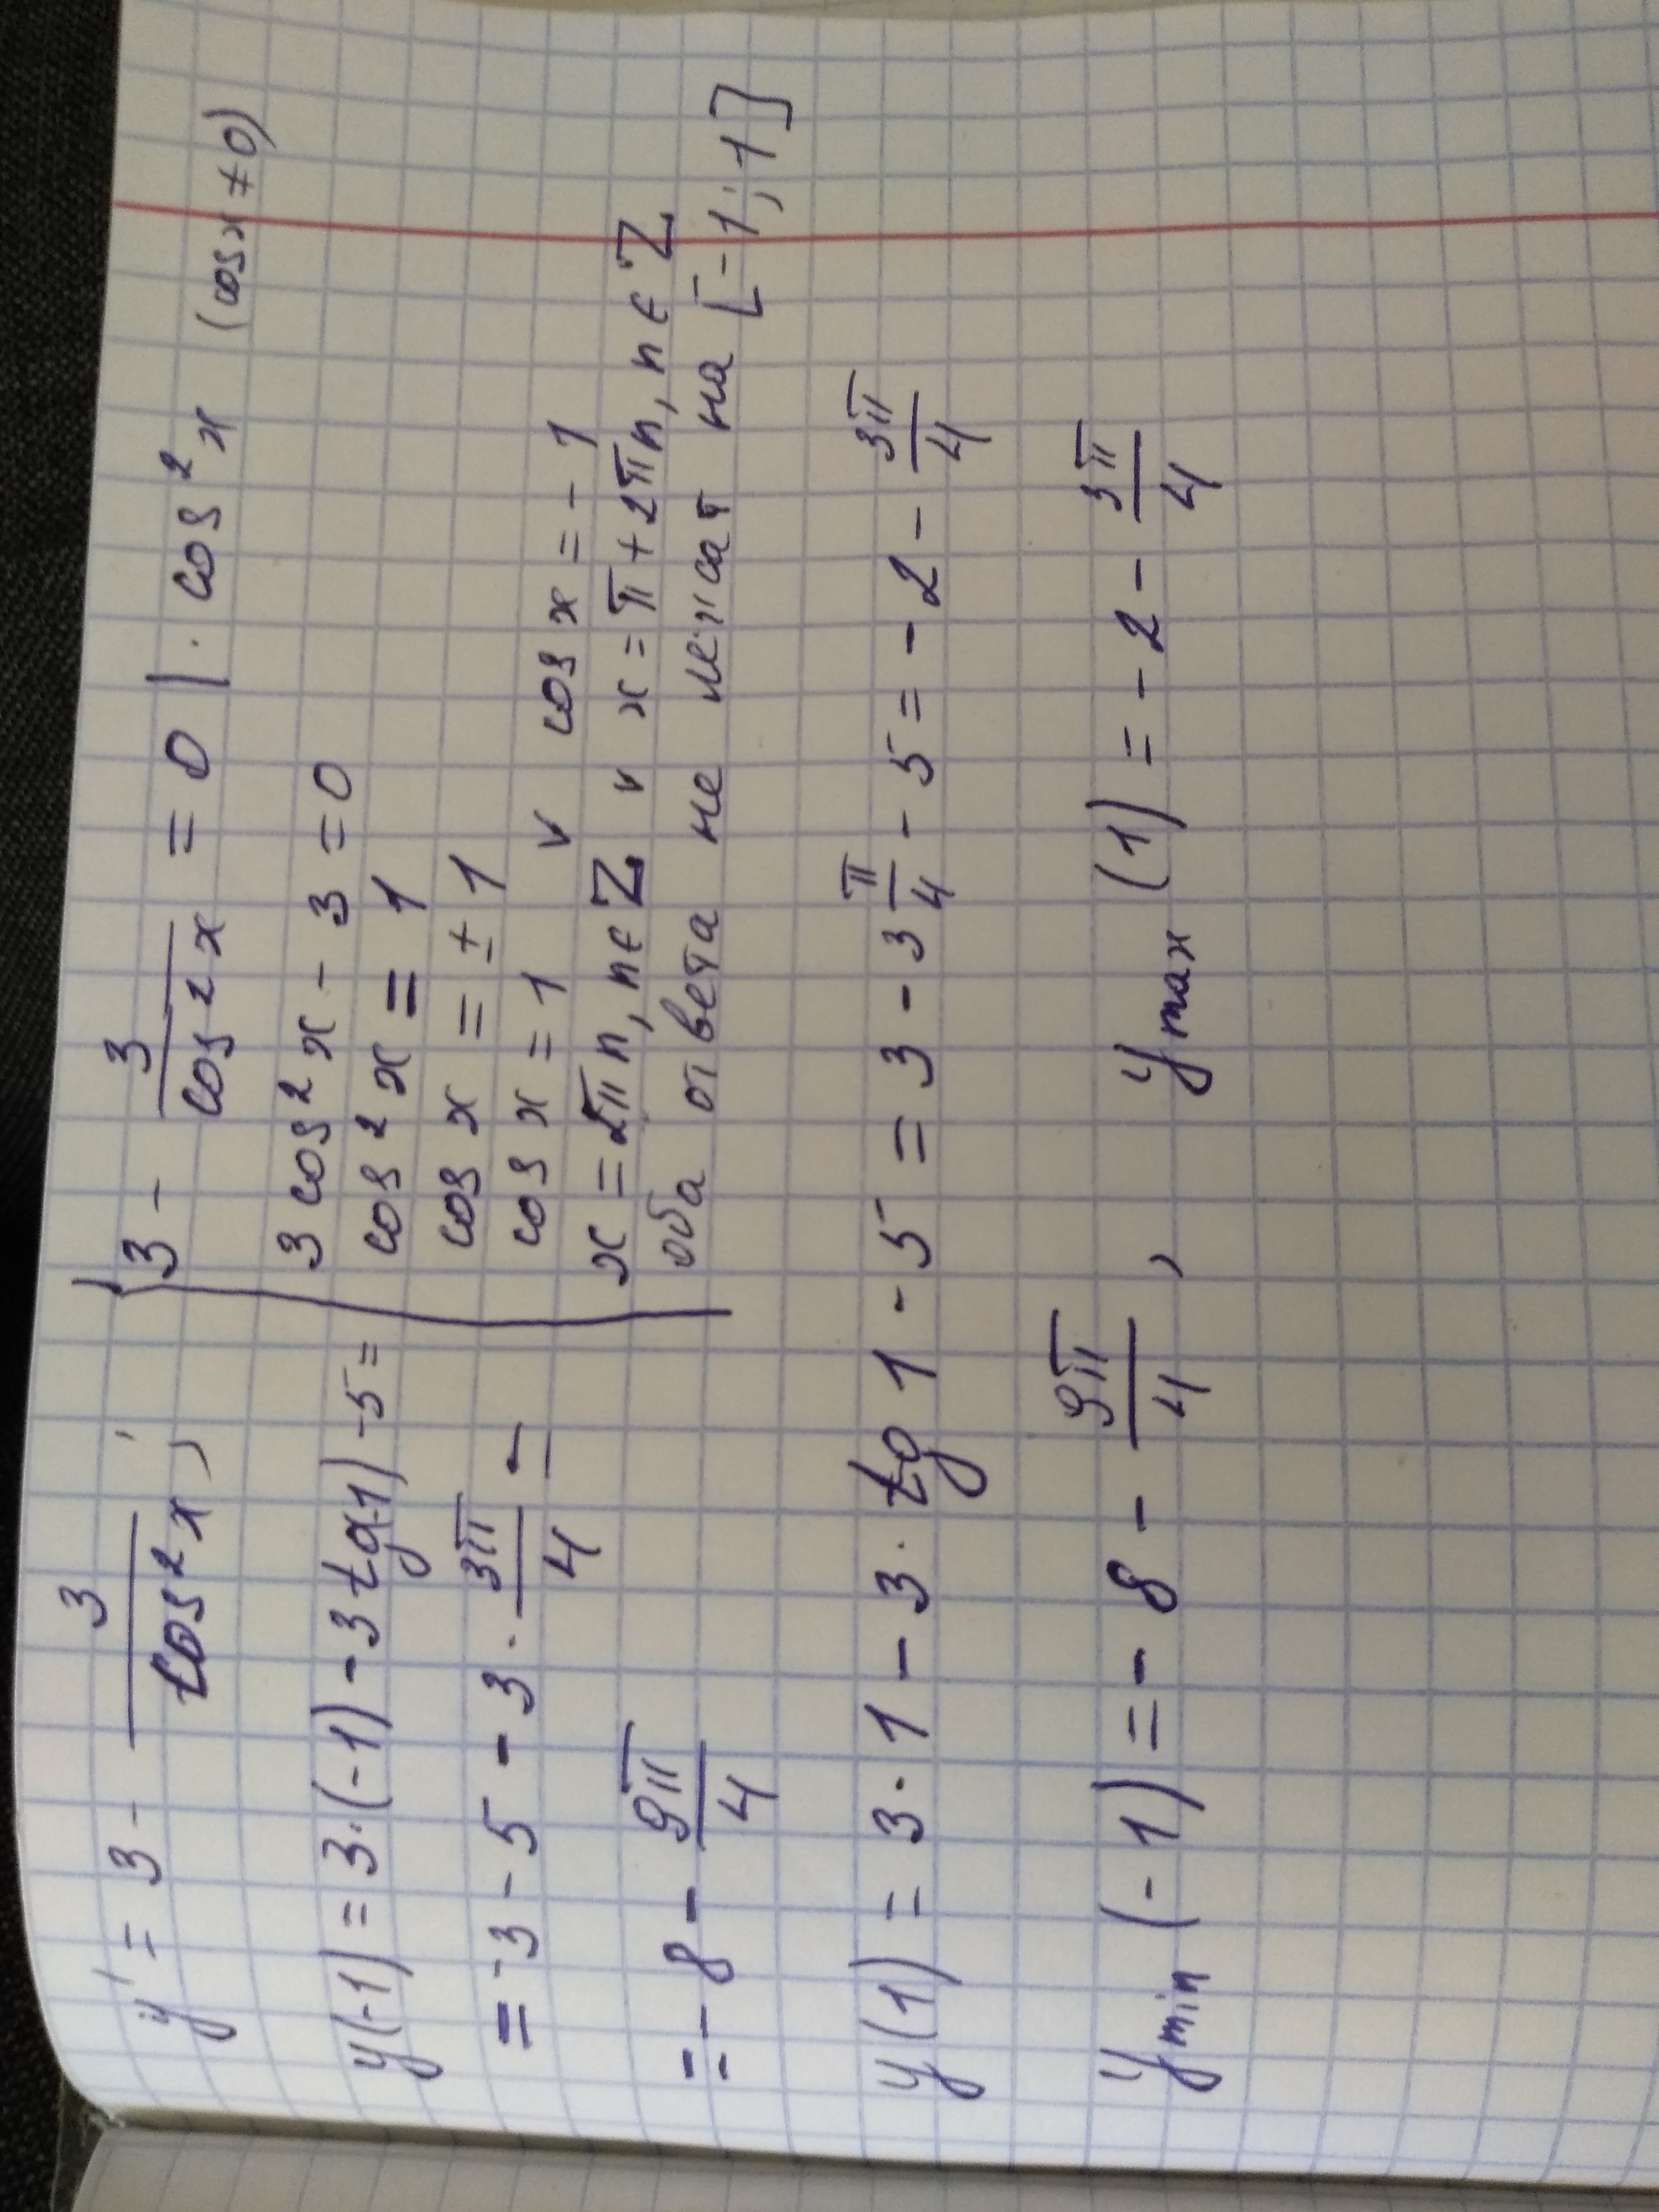 y' = 3 - 3/cos²x ;
{ 3 - 3/cos²x = 0 | · cos²x (cos x ≠ 0)
3 cos²x - 3 = 0
cos²x = 1
cos x = ± 1
cos x = 1 v cos x = - 1
x = 2πn, n ∈ Z v x = π + 2πn, n ∈ Z
оба ответа не лежат на [-1; 1]
y(-1) = 3·(-1) - 3 tg(-1) - 5 =
= -3 - 5 - 3 · 3π/4 =
= - 8 - 9π/4
y(1) = 3 · 1 - 3 · tg 1 - 5 = 3 - 3 π/4 - 5 = - 2 - 3π/4
y min (-1) = - 8 - 9π/4 , y max (1) = - 2 - 3π/4